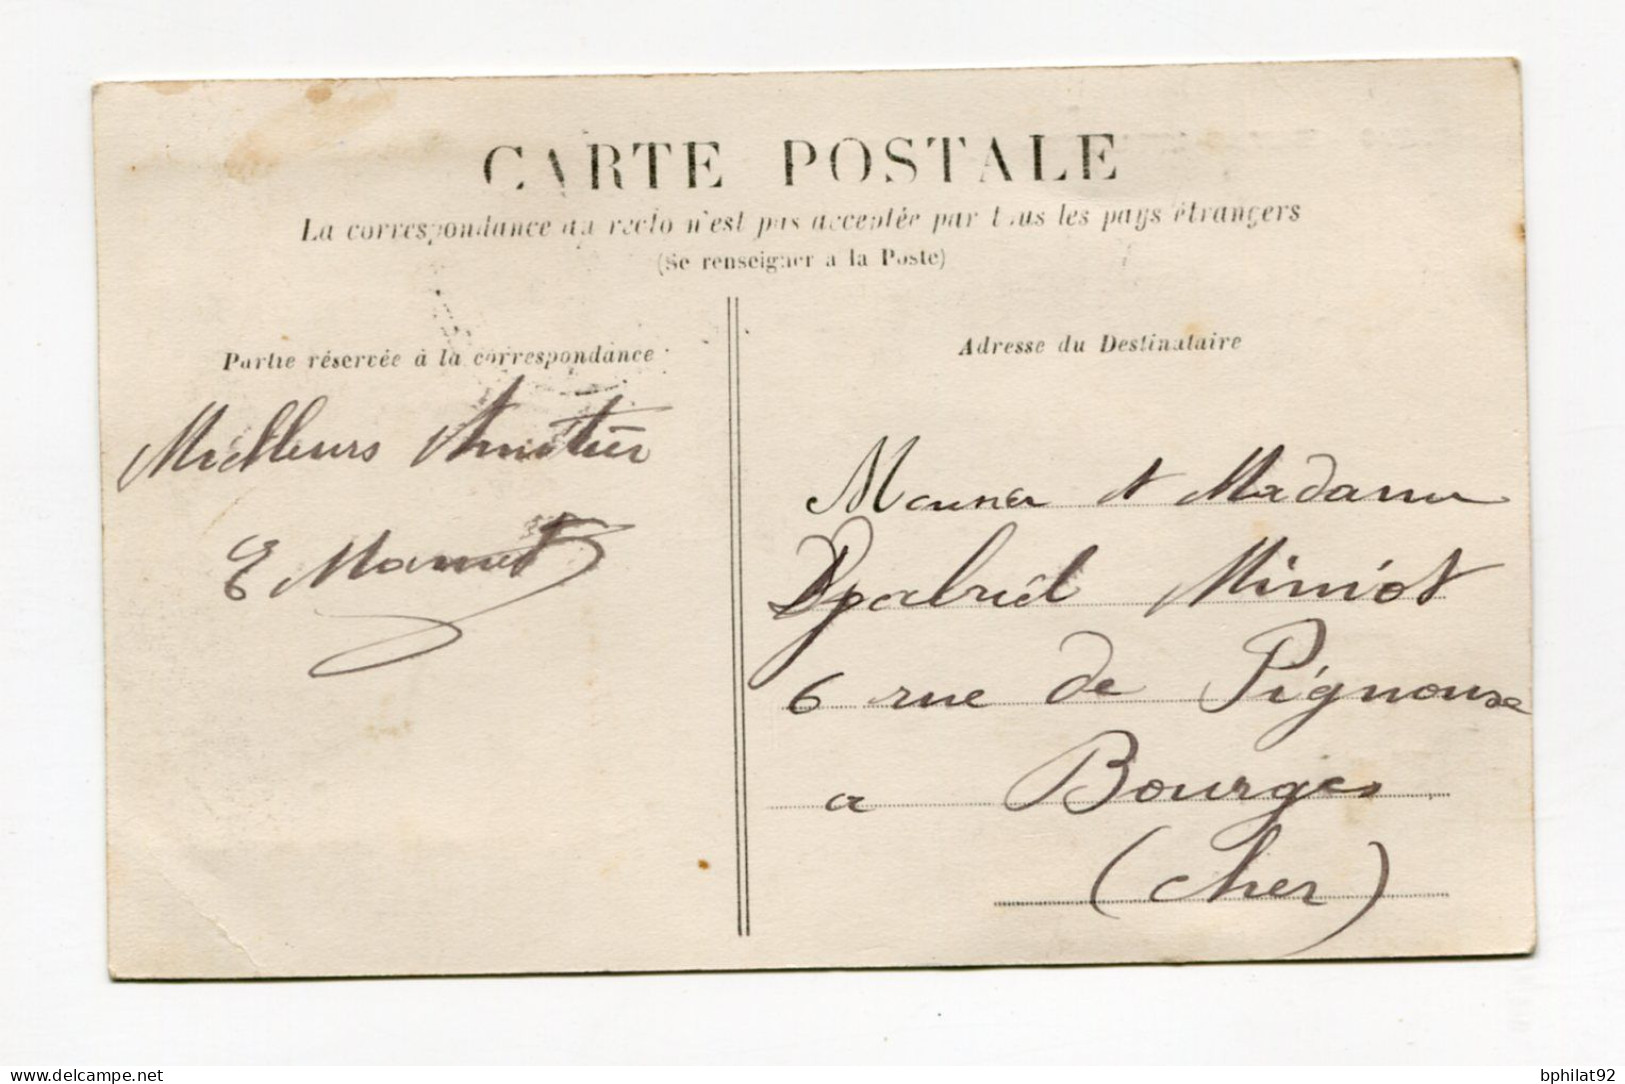 CARTE POSTALE
La correspondance au recto n'est pas acceptée par tous les pays étrangers
(Se renseigner à la Poste)
Partie réservée à la correspondance
Adresse du Destinataire
Meilleurs Amitiés
E Mamet
Monsieur et Madame
Gabriel Miniot
6 rue de Pignoux
a Bourges
(Cher)
delcampe.net
bphilat92